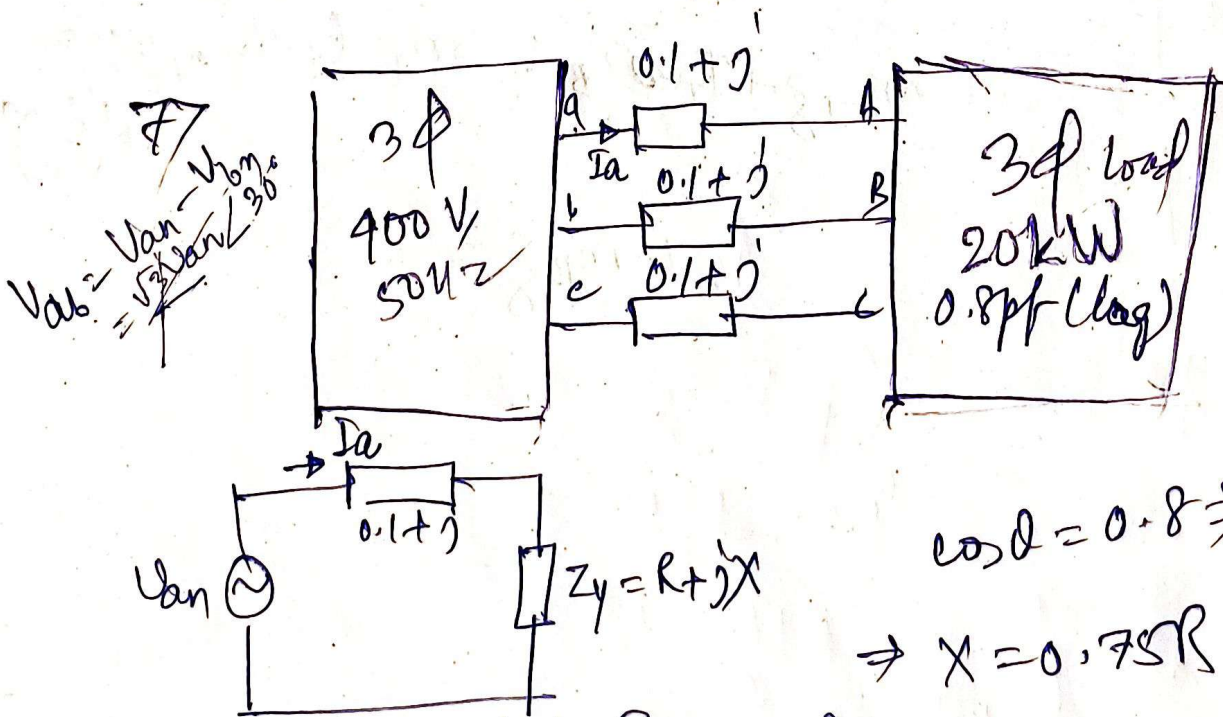 7
Vab = Van - Vbn
= √3 Van ∠30°
3ϕ
400 V,
50Hz
a
Ia
0.1 + j
A
b
0.1 + j
B
c
0.1 + j
C
3ϕ load
20kW
0.8pf (lag)
Ia
0.1 + j
Van
Zy = R + jX
cosθ = 0.8 ⇒
⇒ X = 0.75R